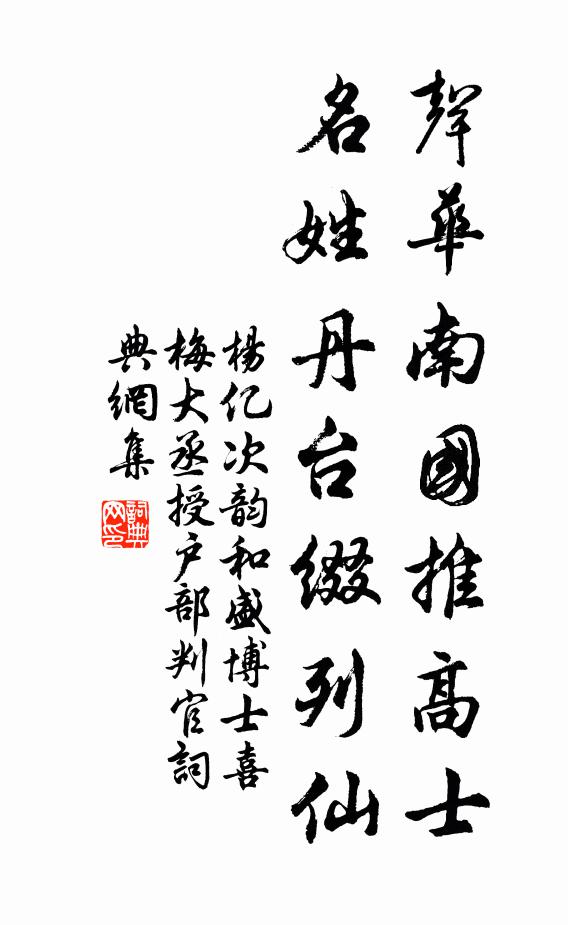 聲華南國推高士
名姓丹台綴列仙
楊亿次韵和盛博士喜
梅大丞授户部判官詞
典網集
詞典网印